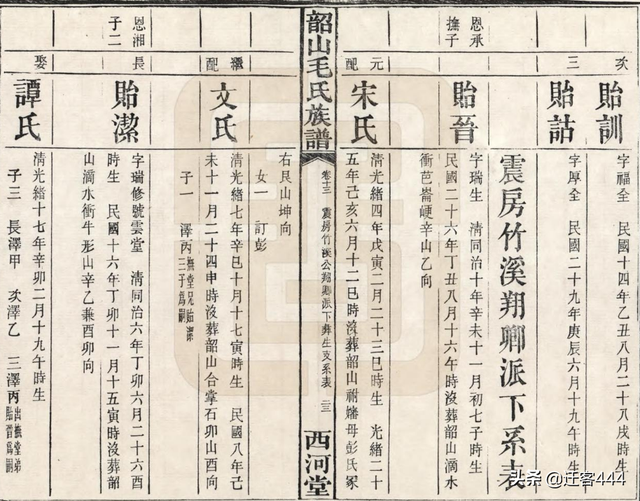 次
貽訓
字福全 民國十四年乙丑八月二十八戌時生
三
貽詁
字厚全 民國二十九年庚辰六月十九午時生
震房竹溪翔卿派下系表
恩承
撫子
貽晉
字瑞生 清同治十年辛未十一月初七子時生
民國二十六年丁丑八月十六午時沒葬韶山滴水
衝芭蕉崾辛山乙向
元配
宋氏
清光緒四年戊寅二月二十三巳時生 光緒二十
五年己亥六月十二巳時沒葬韶山祔嬸母彭氏冢
右艮山坤向
女一 訂彭
韶山毛氏族譜
卷十三 震房竹溪公翔卿派下彝生支系表 二三
西河堂
繼配
文氏
清光緒七年辛巳十月十七寅時生 民國八年己
未十一月二十四申時沒葬韶山合掌石卯山酉向
子一 澤丙撫堂兄貽潔三子爲嗣
恩湘
子二
長
貽潔
字瑞修號雲堂 清同治六年丁卯六月二十六酉
時生 民國十六年丁卯十一月十五寅時沒葬韶
山滴水衝牛形山辛乙兼酉卯向
娶
譚氏
清光緒十七年辛卯二月十九午時生
子三 長澤甲 次澤乙 三澤丙出撫堂弟貽晉爲嗣
头条 @迁客444